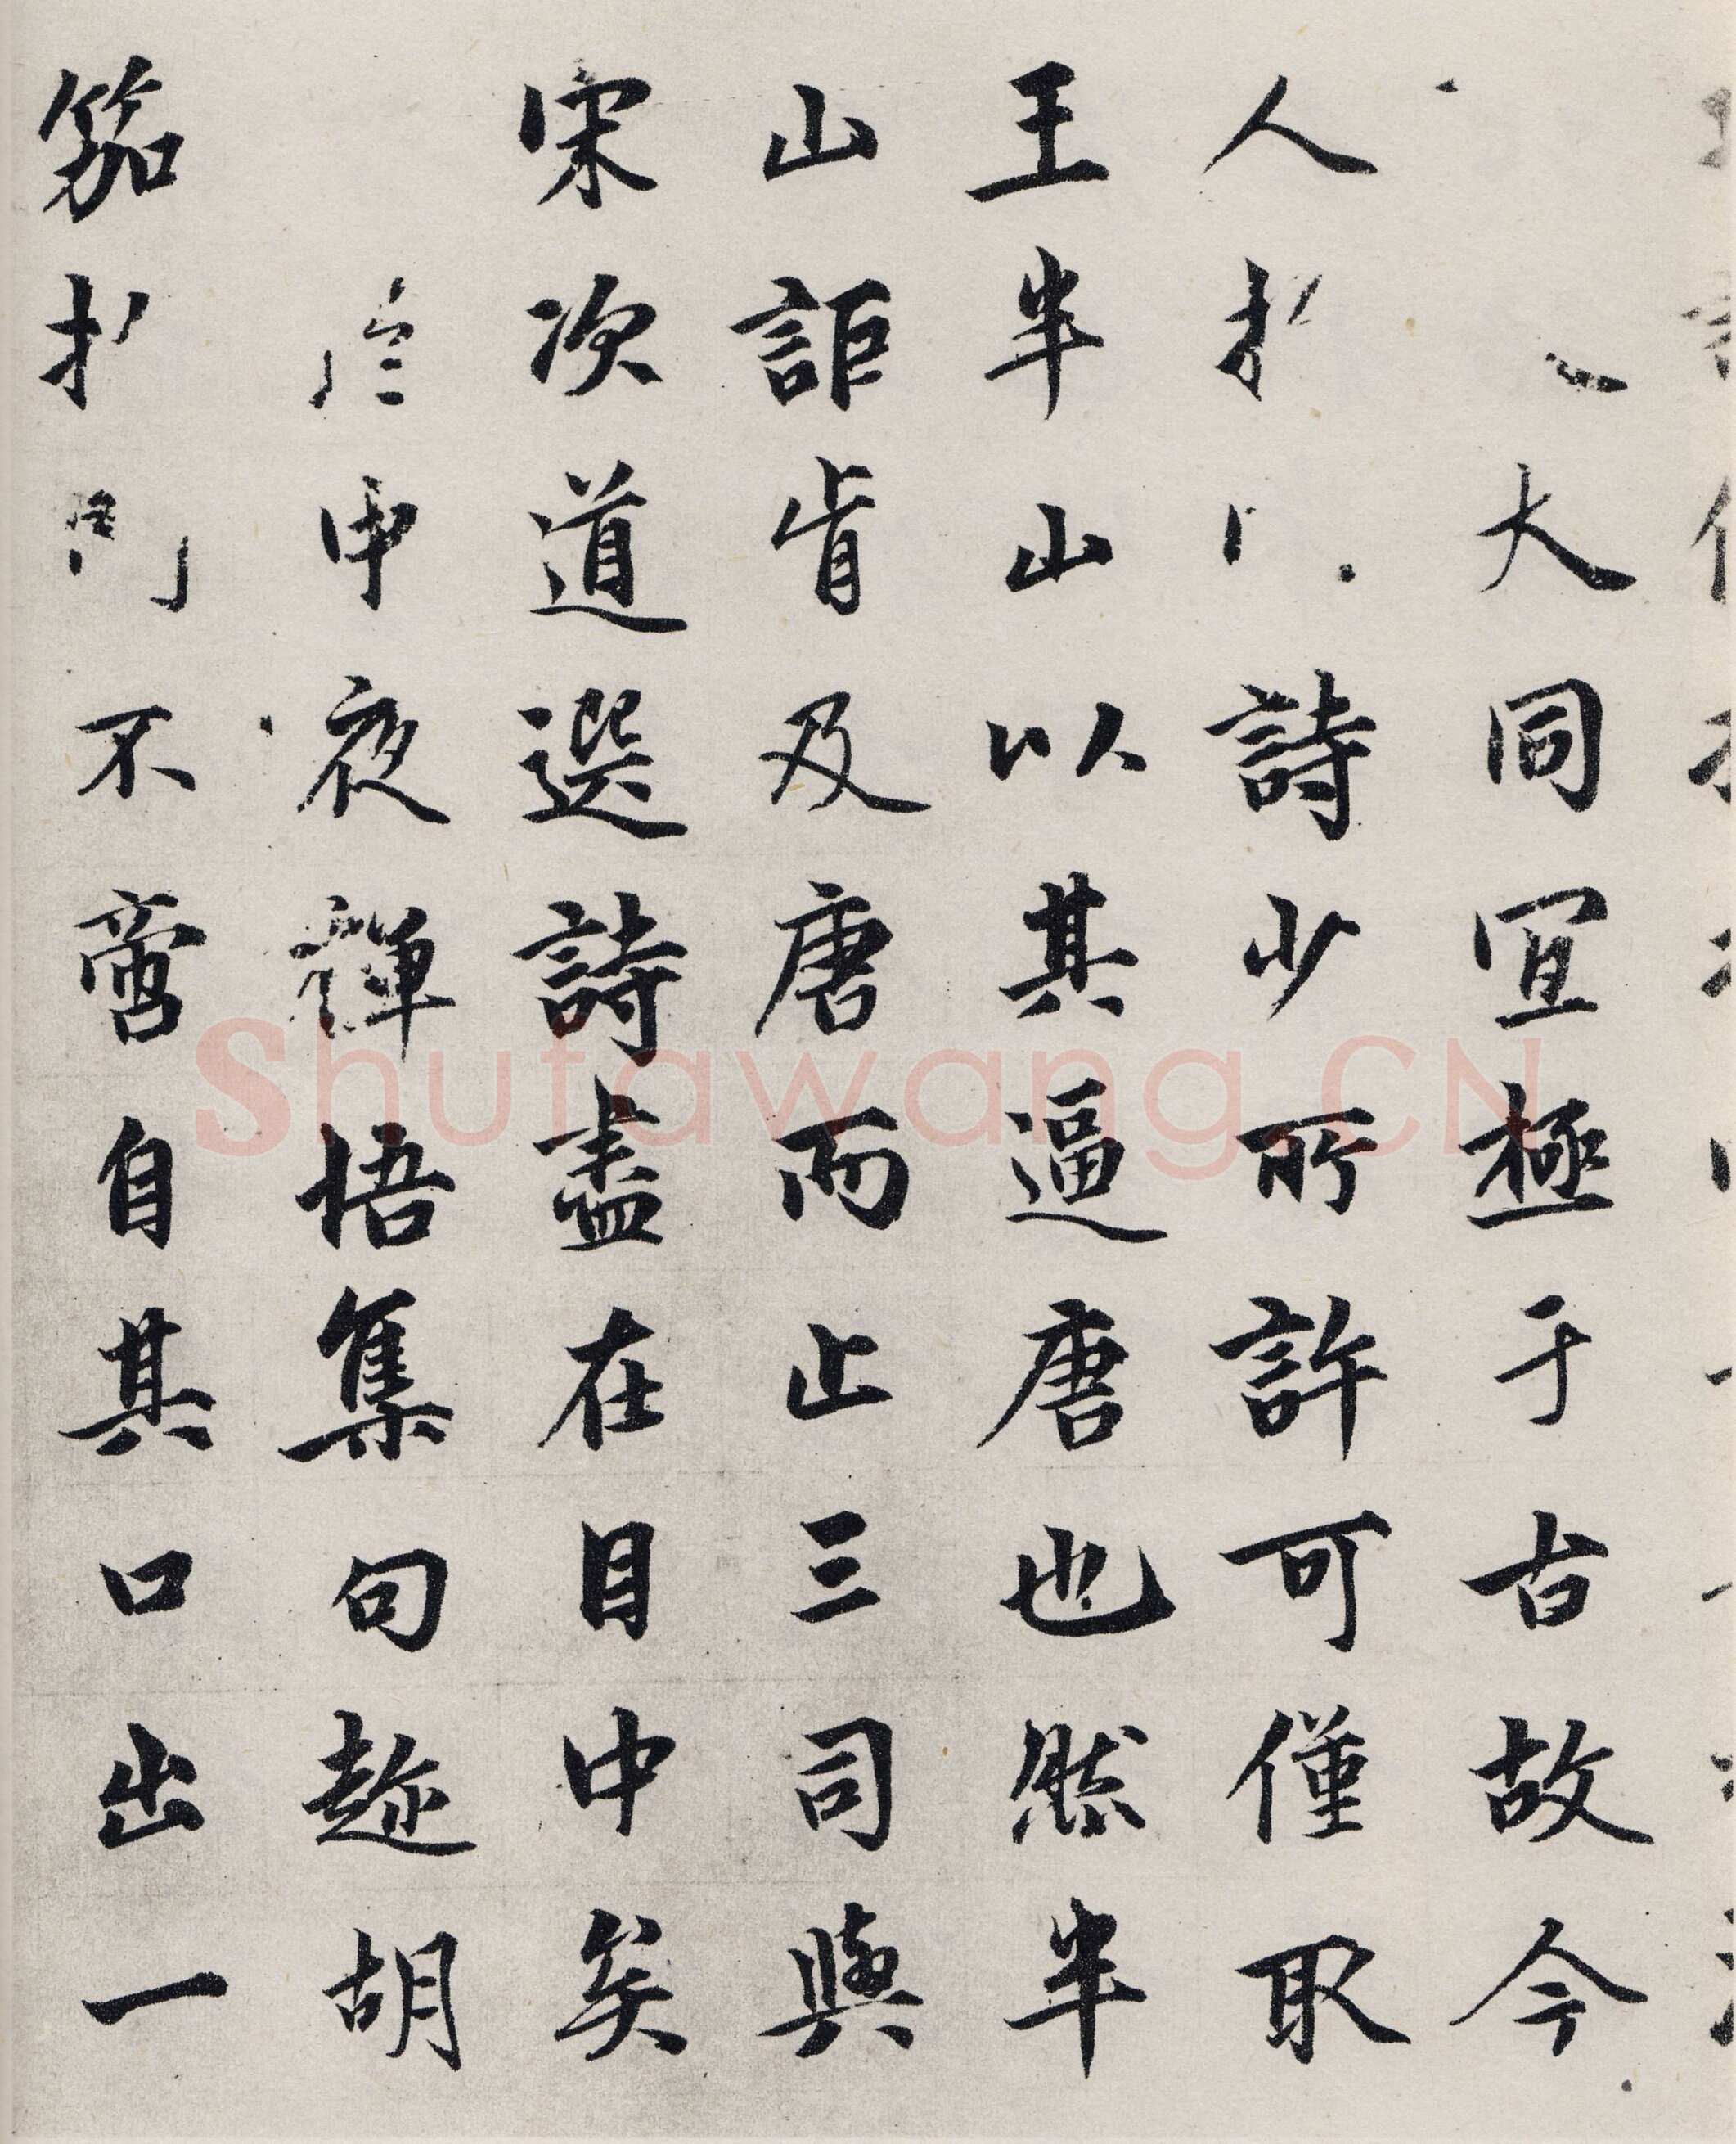 大同冝極于古故今
人詩少所許可僅取
王半山以其逼唐也然半
山詎肯及唐而止三司與
宋次道選詩盡在目中矣
中夜禪悟集句趂胡
笳拍不啻自其口出一
Shufawang.CN